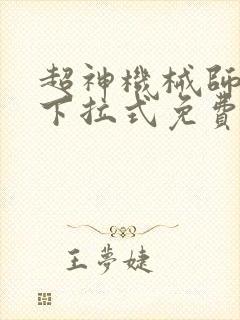 超神機械師
下拉式免費
王夢婕